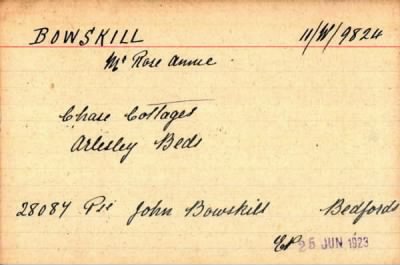 BOWSKILL 11/W/9824
Mrs Rose Annie
Chase Cottages
Arlesley Beds
28087 Pte John Bowskill Bedfords
25 JUN 1923